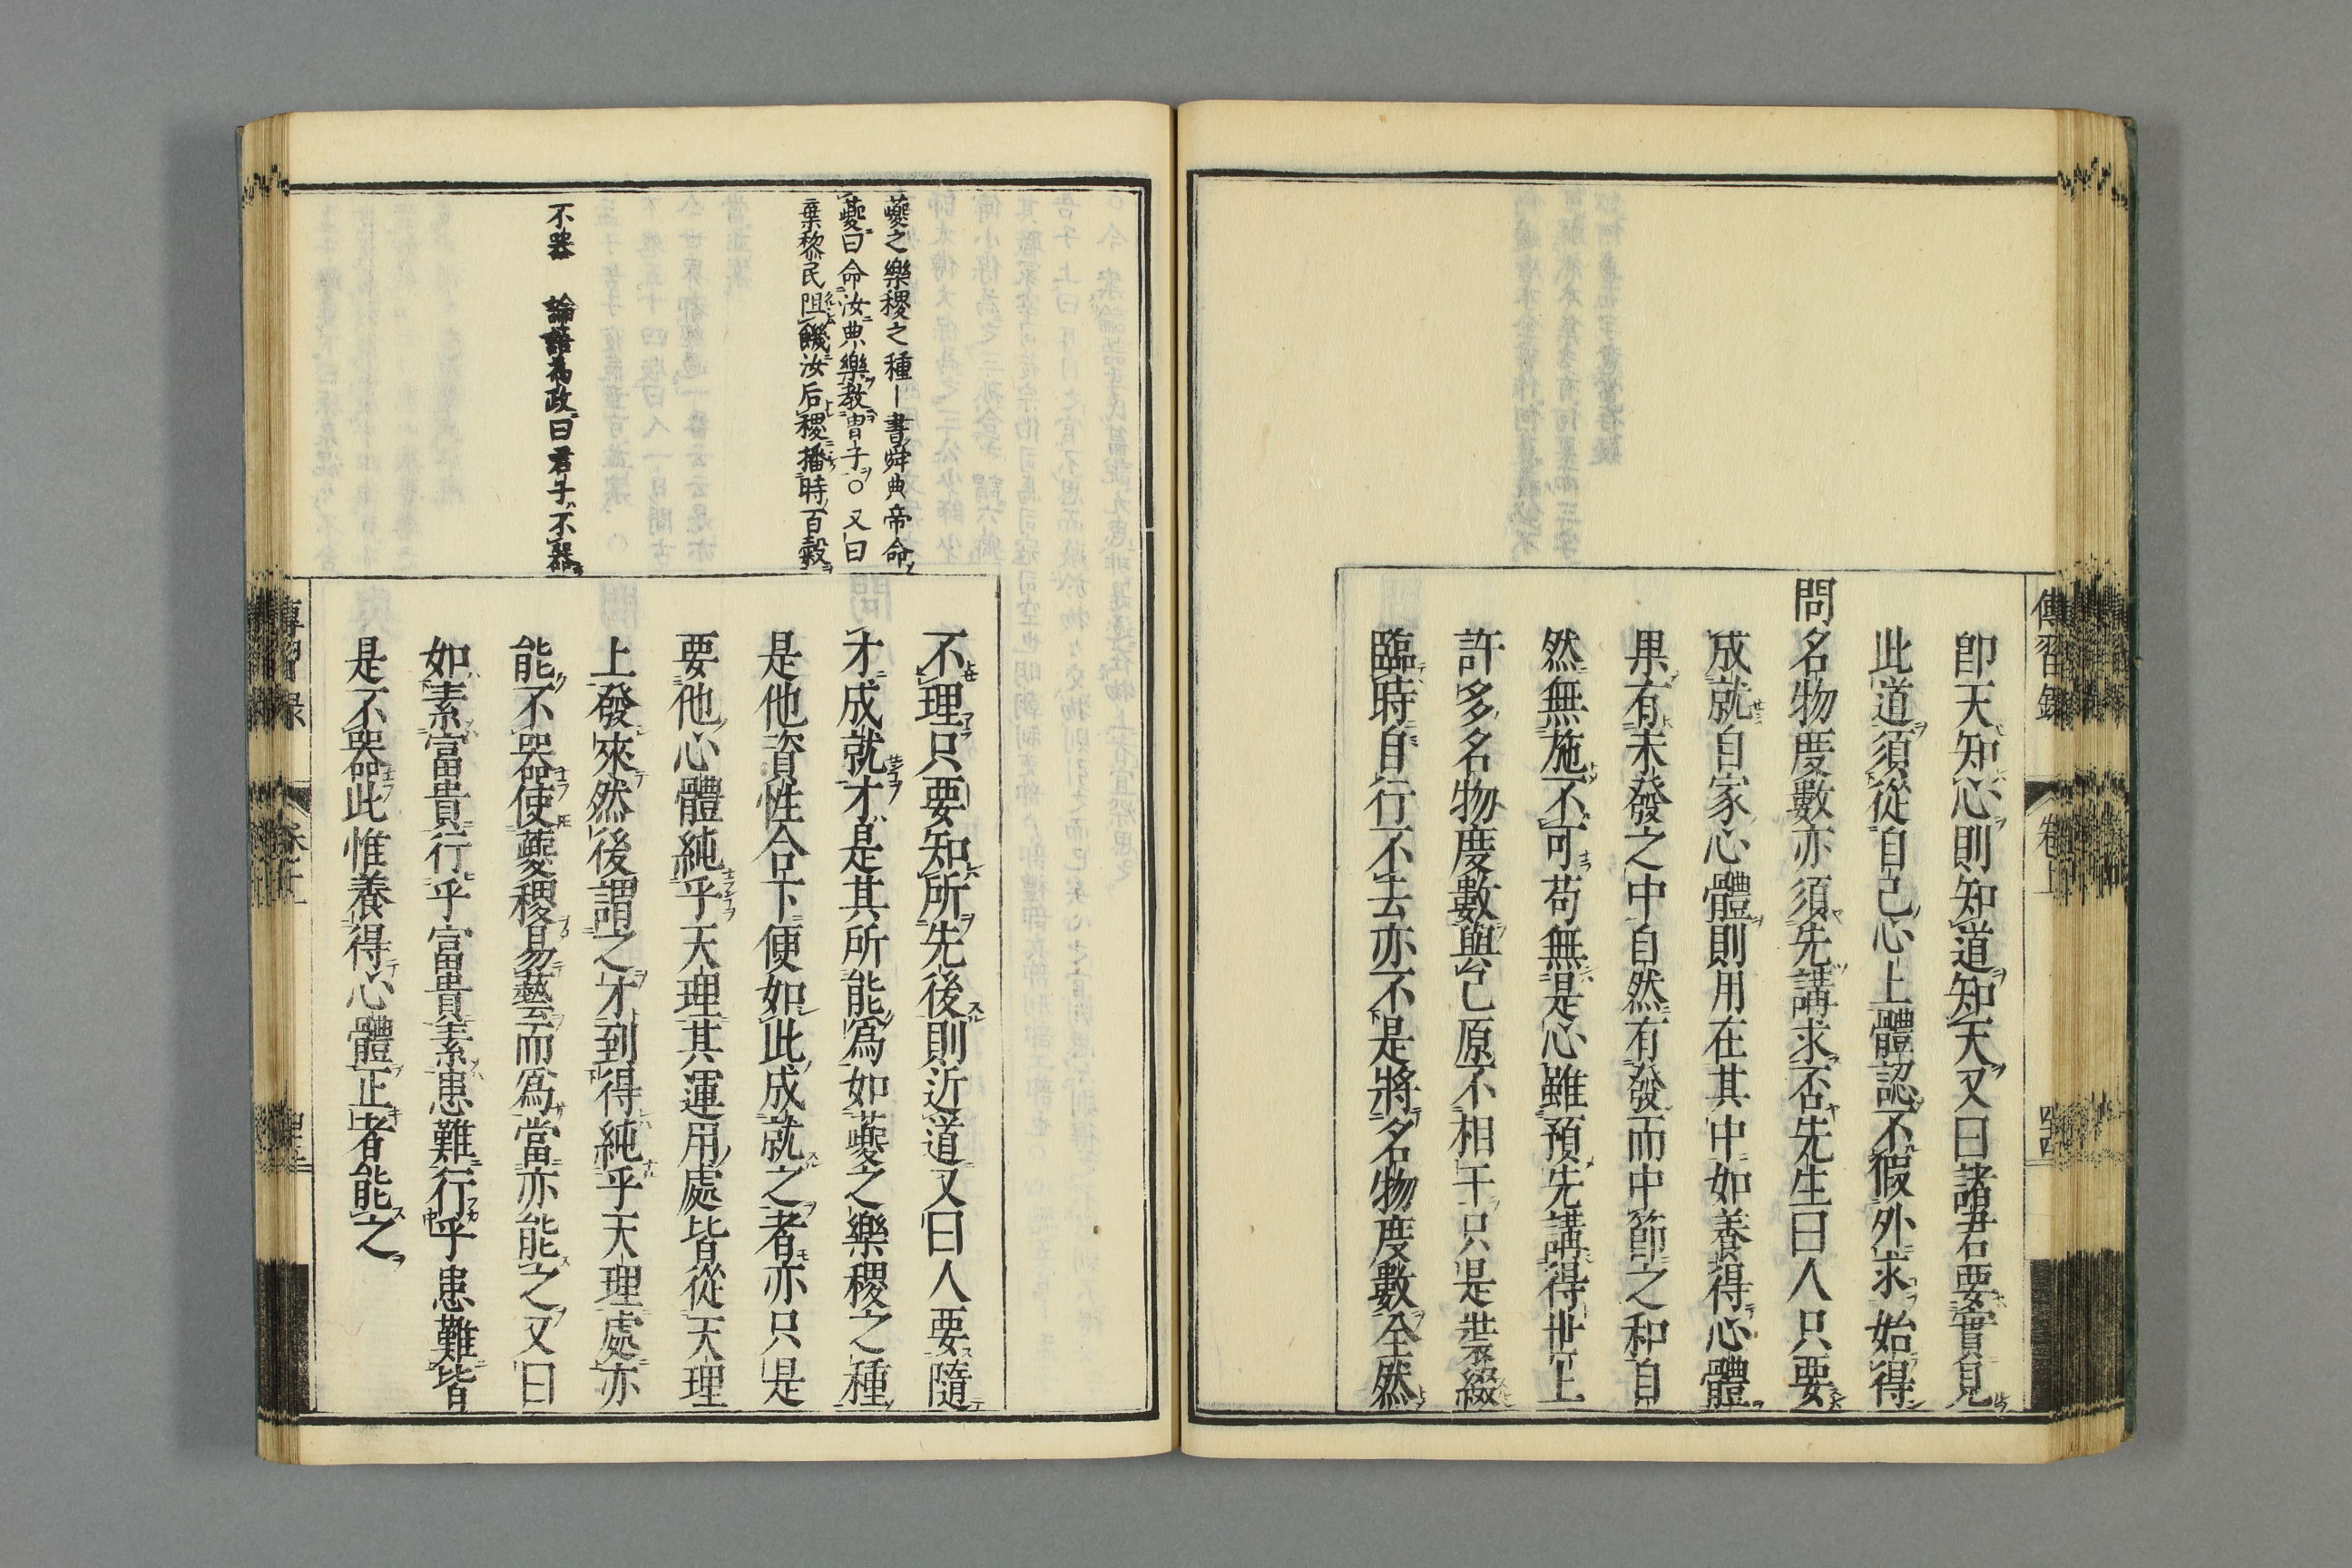 傳習録
卷上
四四
卽天知心則知道知天又曰諸君要實見
此道須從自己心上體認不假外求始得
問名物度數亦須先講求否先生曰人只要
成就自家心體則用在其中如養得心體
果有未發之中自然有發而中節之和自
然無施不可苟無是心雖預先講得世上
許多名物度數與己原不相干只是裝綴
臨時自行不去亦不是將名物度數全然
夔之樂稷之種―書舜典帝命
夔曰命汝典樂教胄子○又曰
棄黎民阻饑汝后稷播時百穀
不器 論語為政曰君子不器
不理只要知所先後則近道又曰人要隨
才成就才是其所能爲如夔之樂稷之種
是他資性合下便如此成就之者亦只是
要他心體純乎天理其運用處皆從天理
上發來然後謂之才到得純乎天理處亦
能不器使夔稷易藝而爲當亦能之又曰
如素富貴行乎富貴素患難行乎患難皆
是不器此惟養得心體正者能之
傳習録